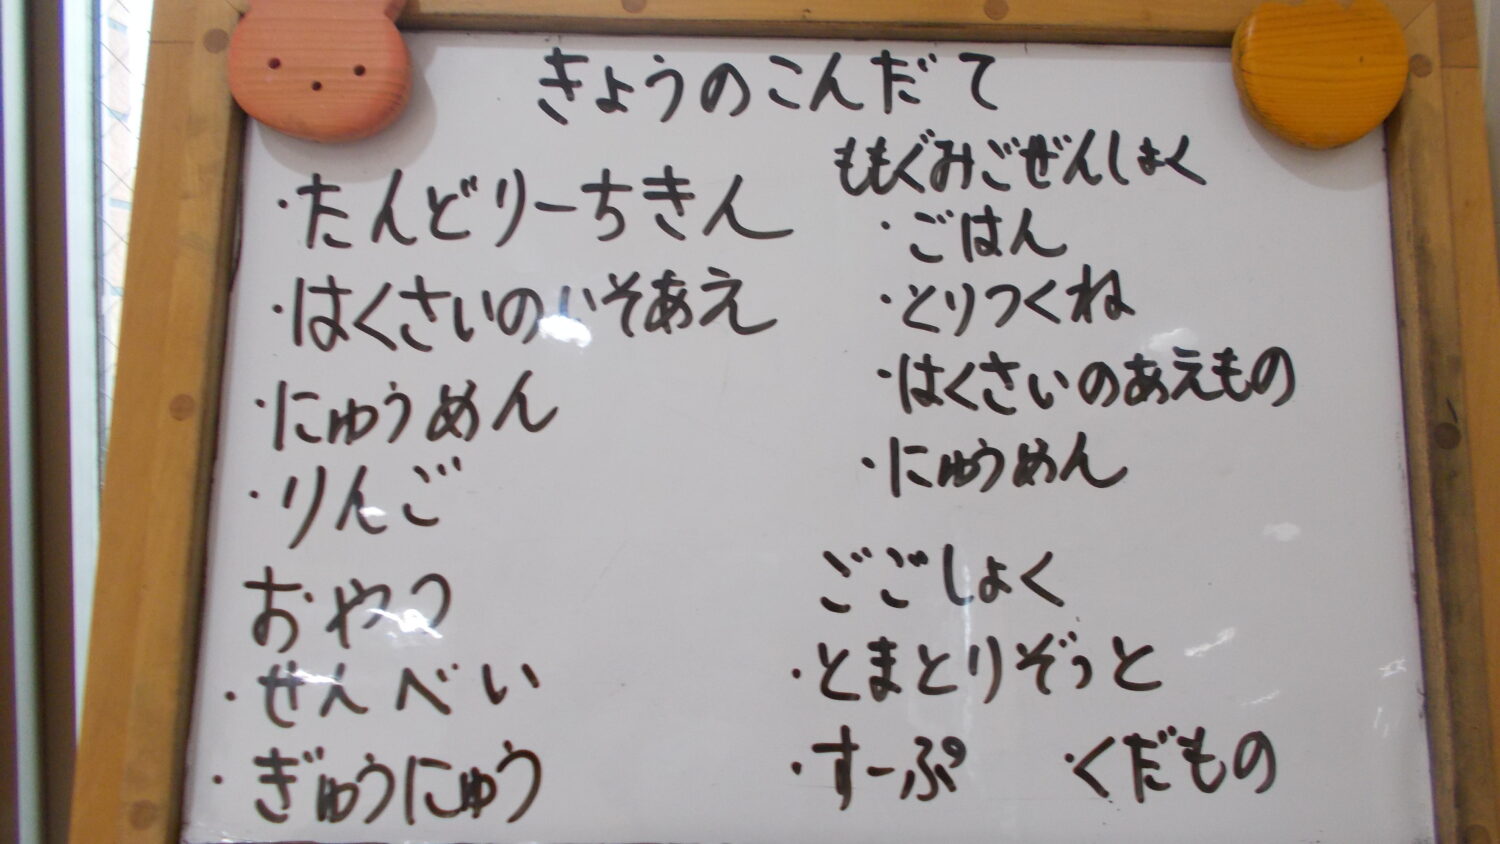 きょうのこんだて
・たんどりーちきん
・はくさいのいそあえ
・にゅうめん
・りんご
おやつ
・せんべい
・ぎゅうにゅう
ももぐみごぜんしょく
・ごはん
・とりつくね
・はくさいのあえもの
・にゅうめん
ごごしょく
・とまとりぞっと
・すーぷ ・くだもの